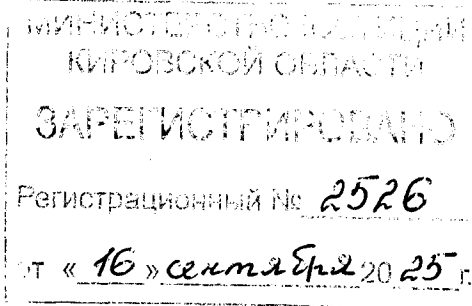 МИНИСТЕРСТВО ЮСТИЦИИ
КИРОВСКОЙ ОБЛАСТИ
ЗАРЕГИСТРИРОВАНО
Регистрационный № 2526
от « 16 » сентября 20 25 г.